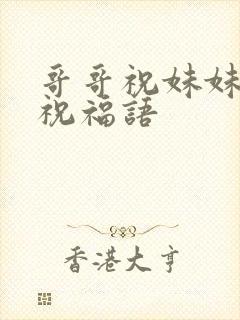 哥哥祝妹妹
祝福語
香港大亨